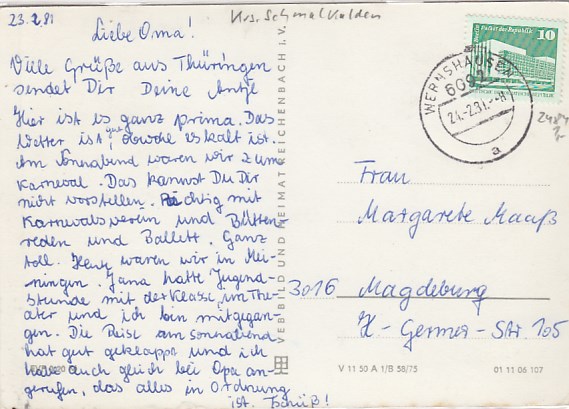 23.2.81
Krs. Schmalkalden
Liebe Oma!
Viele Grüße aus Thüringen
sendet Dir Deine Antje
Hier ist es ganz prima. Das
Wetter ist gut obwohl es kalt ist.
Am Sonnabend waren wir zum
Karneval. Das kannst Du Dir
nicht vorstellen. Richtig mit
Karnevalsverein und Bütten-
reden und Ballett. Ganz
toll. Heute waren wir in Mei-
ningen. Jana hatte Jugend-
stunde mit der Klasse im The-
ater und ich bin mitgegan-
gen. Die Reise am Sonnabend
hat gut geklappt und ich
habe auch gleich bei Opa an-
gerufen, das alles in Ordnung
ist. Tschüß!
VEB BILD UND HEIMAT REICHENBACH I. V.
Palast der Republik
10
WERNSHAUSEN
6092
24.-2.81.-8
a
Frau
Margarete Maaß
3016 Magdeburg
H-Germer-Str. 105
V 11 50 A 1/B 58/75
01 11 06 107